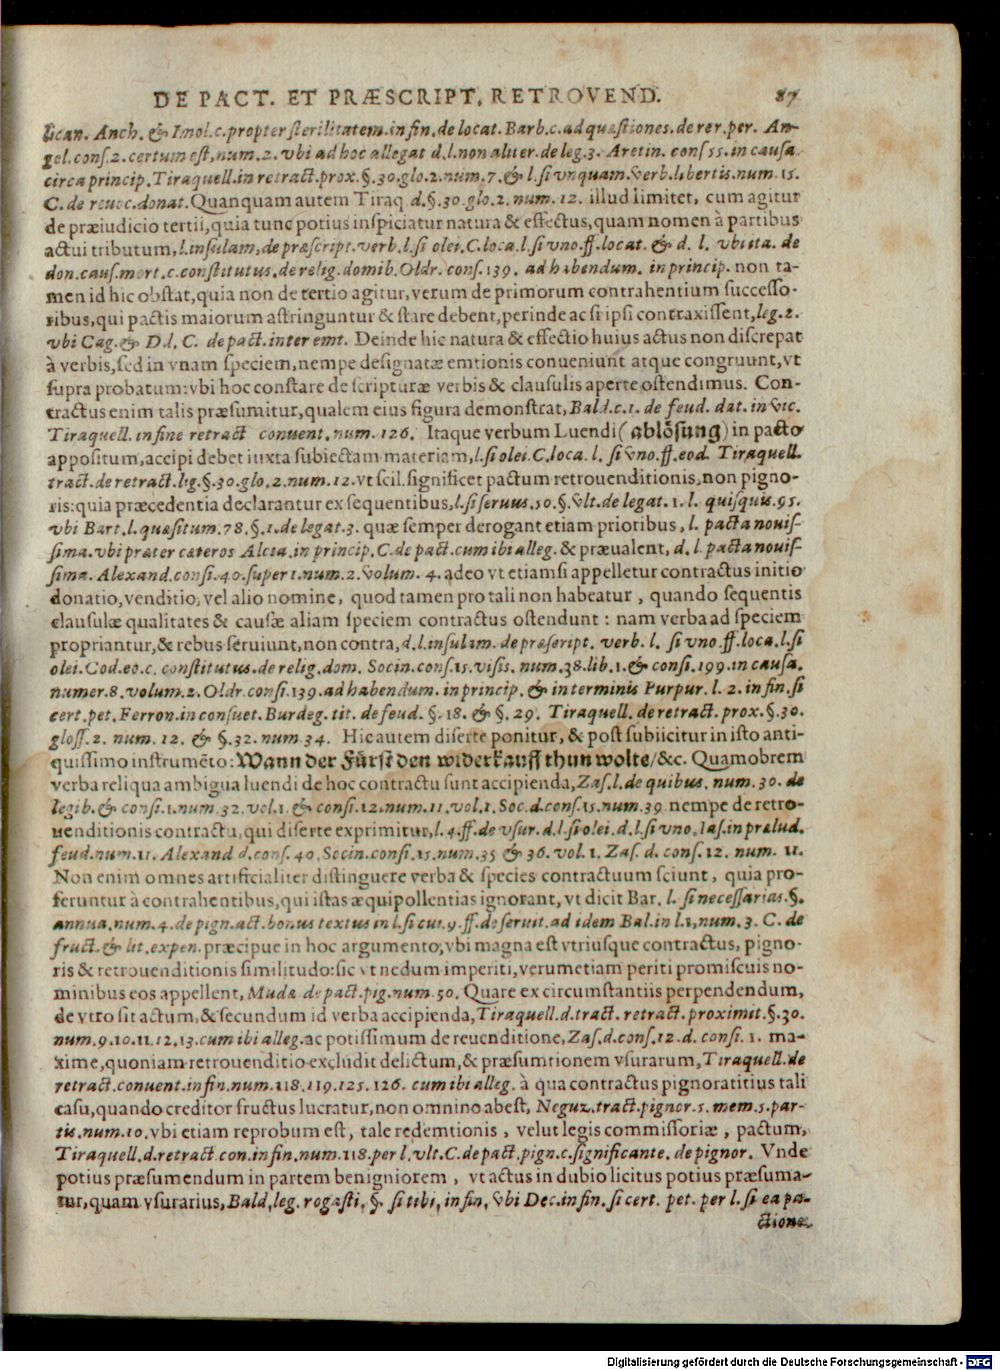 DE PACT. ET PRÆSCRIPT. RETROVEND. 87
lican. Anch. & Imol. c. propter sterilitatem. in fin. de locat. Barb. c. ad quæstiones. de rer. per. An-
gel. cons. 2. certum est, num. 2. vbi ad hoc allegat d. l. non aliter. de leg. 3. Aretin. cons 55. in causa
circa princip. Tiraquell. in retract. prox. §. 30. glo. 2. num. 7. & l. si vnquam. verb. libertis. num. 15.
C. de reuoc. donat. Quanquam autem Tiraq d. §. 30. glo. 2. num. 12. illud limitet, cum agitur
de præiudicio tertii, quia tunc potius inspiciatur natura & effectus, quam nomen à partibus
actui tributum, l. insulam, de præscript. verb. l. si olei. C. loca. l. si vno. ff. locat. & d. l. vbi ita. de
don. caus. mort. c. constitutus. de relig. domib. Oldr. cons. 139. ad habendum. in princip. non ta-
men id hic obstat, quia non de tertio agitur, verum de primorum contrahentium successo-
ribus, qui pactis maiorum astringuntur & stare debent, perinde ac si ipsi contraxissent, leg. 2.
vbi Cag. & D. l. C. de pact. inter emt. Deinde hic natura & effectio huius actus non discrepat
à verbis, sed in vnam speciem, nempe designatæ emtionis conueniunt atque congruunt, vt
supra probatum: vbi hoc constare de scripturæ verbis & clausulis aperte ostendimus. Con-
tractus enim talis præsumitur, qualem eius figura demonstrat, Bald. c. 1. de feud. dat. in vic.
Tiraquell. in fine retract conuent. num. 126. Itaque verbum Luendi (ablösung) in pacto
appositum, accipi debet iuxta subiectam materiam, l. si olei. C. loca. l. si vno. ff. eod. Tiraquell.
tract. de retract. lig. §. 30. glo. 2. num. 12. vt scil. significet pactum retrouenditionis, non pigno-
ris: quia præcedentia declarantur ex sequentibus, l. si seruus. 50. §. vlt. de legat. 1. l. quisquis. 95.
vbi Bart. l. quæsitum. 78. §. 1. de legat. 3. quæ semper derogant etiam prioribus, l. pacta nouis-
sima. vbi præter cæteros Alcia. in princip. C. de pact. cum ibi alleg. & præualent, d. l. pacta nouis-
sima. Alexand. consi. 40. super 1. num. 2. volum. 4. adeo vt etiamsi appelletur contractus initio
donatio, venditio, vel alio nomine, quod tamen pro tali non habeatur, quando sequentis
clausulæ qualitates & causæ aliam speciem contractus ostendunt: nam verba ad speciem
propriantur, & rebus seruiunt, non contra, d. l. insulam. de præscript. verb. l. si vno. ff. loca. l. si
olei. Cod. eo. c. constitutus. de relig. dom. Socin. cons. 15. visis. num. 38. lib. 1. & consi. 199. in causa.
numer. 8. volum. 2. Oldr. consi. 139. ad habendum. in princip. & in terminis Purpur. l. 2. in fin. si
cert. pet. Ferron. in consuet. Burdeg. tit. de feud. §. 18. & §. 29. Tiraquell. de retract. prox. §. 30.
gloss. 2. num. 12. & §. 32. num. 34. Hic autem diserte ponitur, & post subiicitur in isto anti-
quissimo instrumēto: Wann der Fürst den widerkauff thun wolte/ &c. Quamobrem
verba reliqua ambigua luendi de hoc contractu sunt accipienda, Zas. l. de quibus. num. 30. de
legib. & consi. 1. num. 32. vol. 1. & consi. 12. num. 11. vol. 1. Soc. d. cons. 15. num. 39. nempe de retro-
uenditionis contractu, qui diserte exprimitur, l. 4. ff. de vsur. d. l. si olei. d. l. si vno. Ias. in prælud.
feud. num. 11. Alexand d. cons. 40. Socin. consi. 15. num. 35 & 36. vol. 1. Zas. d. cons. 12. num. 11.
Non enim omnes artificialiter distinguere verba & species contractuum sciunt, quia pro-
feruntur à contrahentibus, qui istas æquipollentias ignorant, vt dicit Bar. l. si necessarias. §.
annua, num. 4. de pign. act. bonus textus in l. si cui. 9. ff. de seruit. ad idem Bal. in l. 1, num. 3. C. de
fruct. & lit. expen. præcipue in hoc argumento, vbi magna est vtriusque contractus, pigno-
ris & retrouenditionis similitudo: sic vt nedum imperiti, verumetiam periti promiscuis no-
minibus eos appellent, Mudæ de pact. pig. num. 50. Quare ex circumstantiis perpendendum,
de vtro sit actum, & secundum id verba accipienda, Tiraquell. d. tract. retract. proximit. §. 30.
num. 9. 10. 11. 12. 13. cum ibi alleg. ac potissimum de reuenditione, Zas. d. cons. 12. d. consi. 1. ma-
xime, quoniam retrouenditio excludit delictum, & præsumtionem vsurarum, Tiraquell. de
retract. conuent. in fin. num. 118. 119. 125. 126. cum ibi alleg. à qua contractus pignoratitius tali
casu, quando creditor fructus lucratur, non omnino abest, Neguz. tract. pignor. 5. mem. 5. par-
tis. num. 10. vbi etiam reprobum est, tale redemtionis, velut legis commissoriæ, pactum,
Tiraquell. d. retract. con. in fin. num. 118. per l. vlt. C. de pact. pign. c. significante. de pignor. Vnde
potius præsumendum in partem benigniorem, vt actus in dubio licitus potius præsuma-
tur, quam vsurarius, Bald, leg. rogasti. §. si tibi, in fin, vbi Dec. in fin. si cert. pet. per l. si ea pa-
ctione.
Digitalisierung gefördert durch die Deutsche Forschungsgemeinschaft - DFG